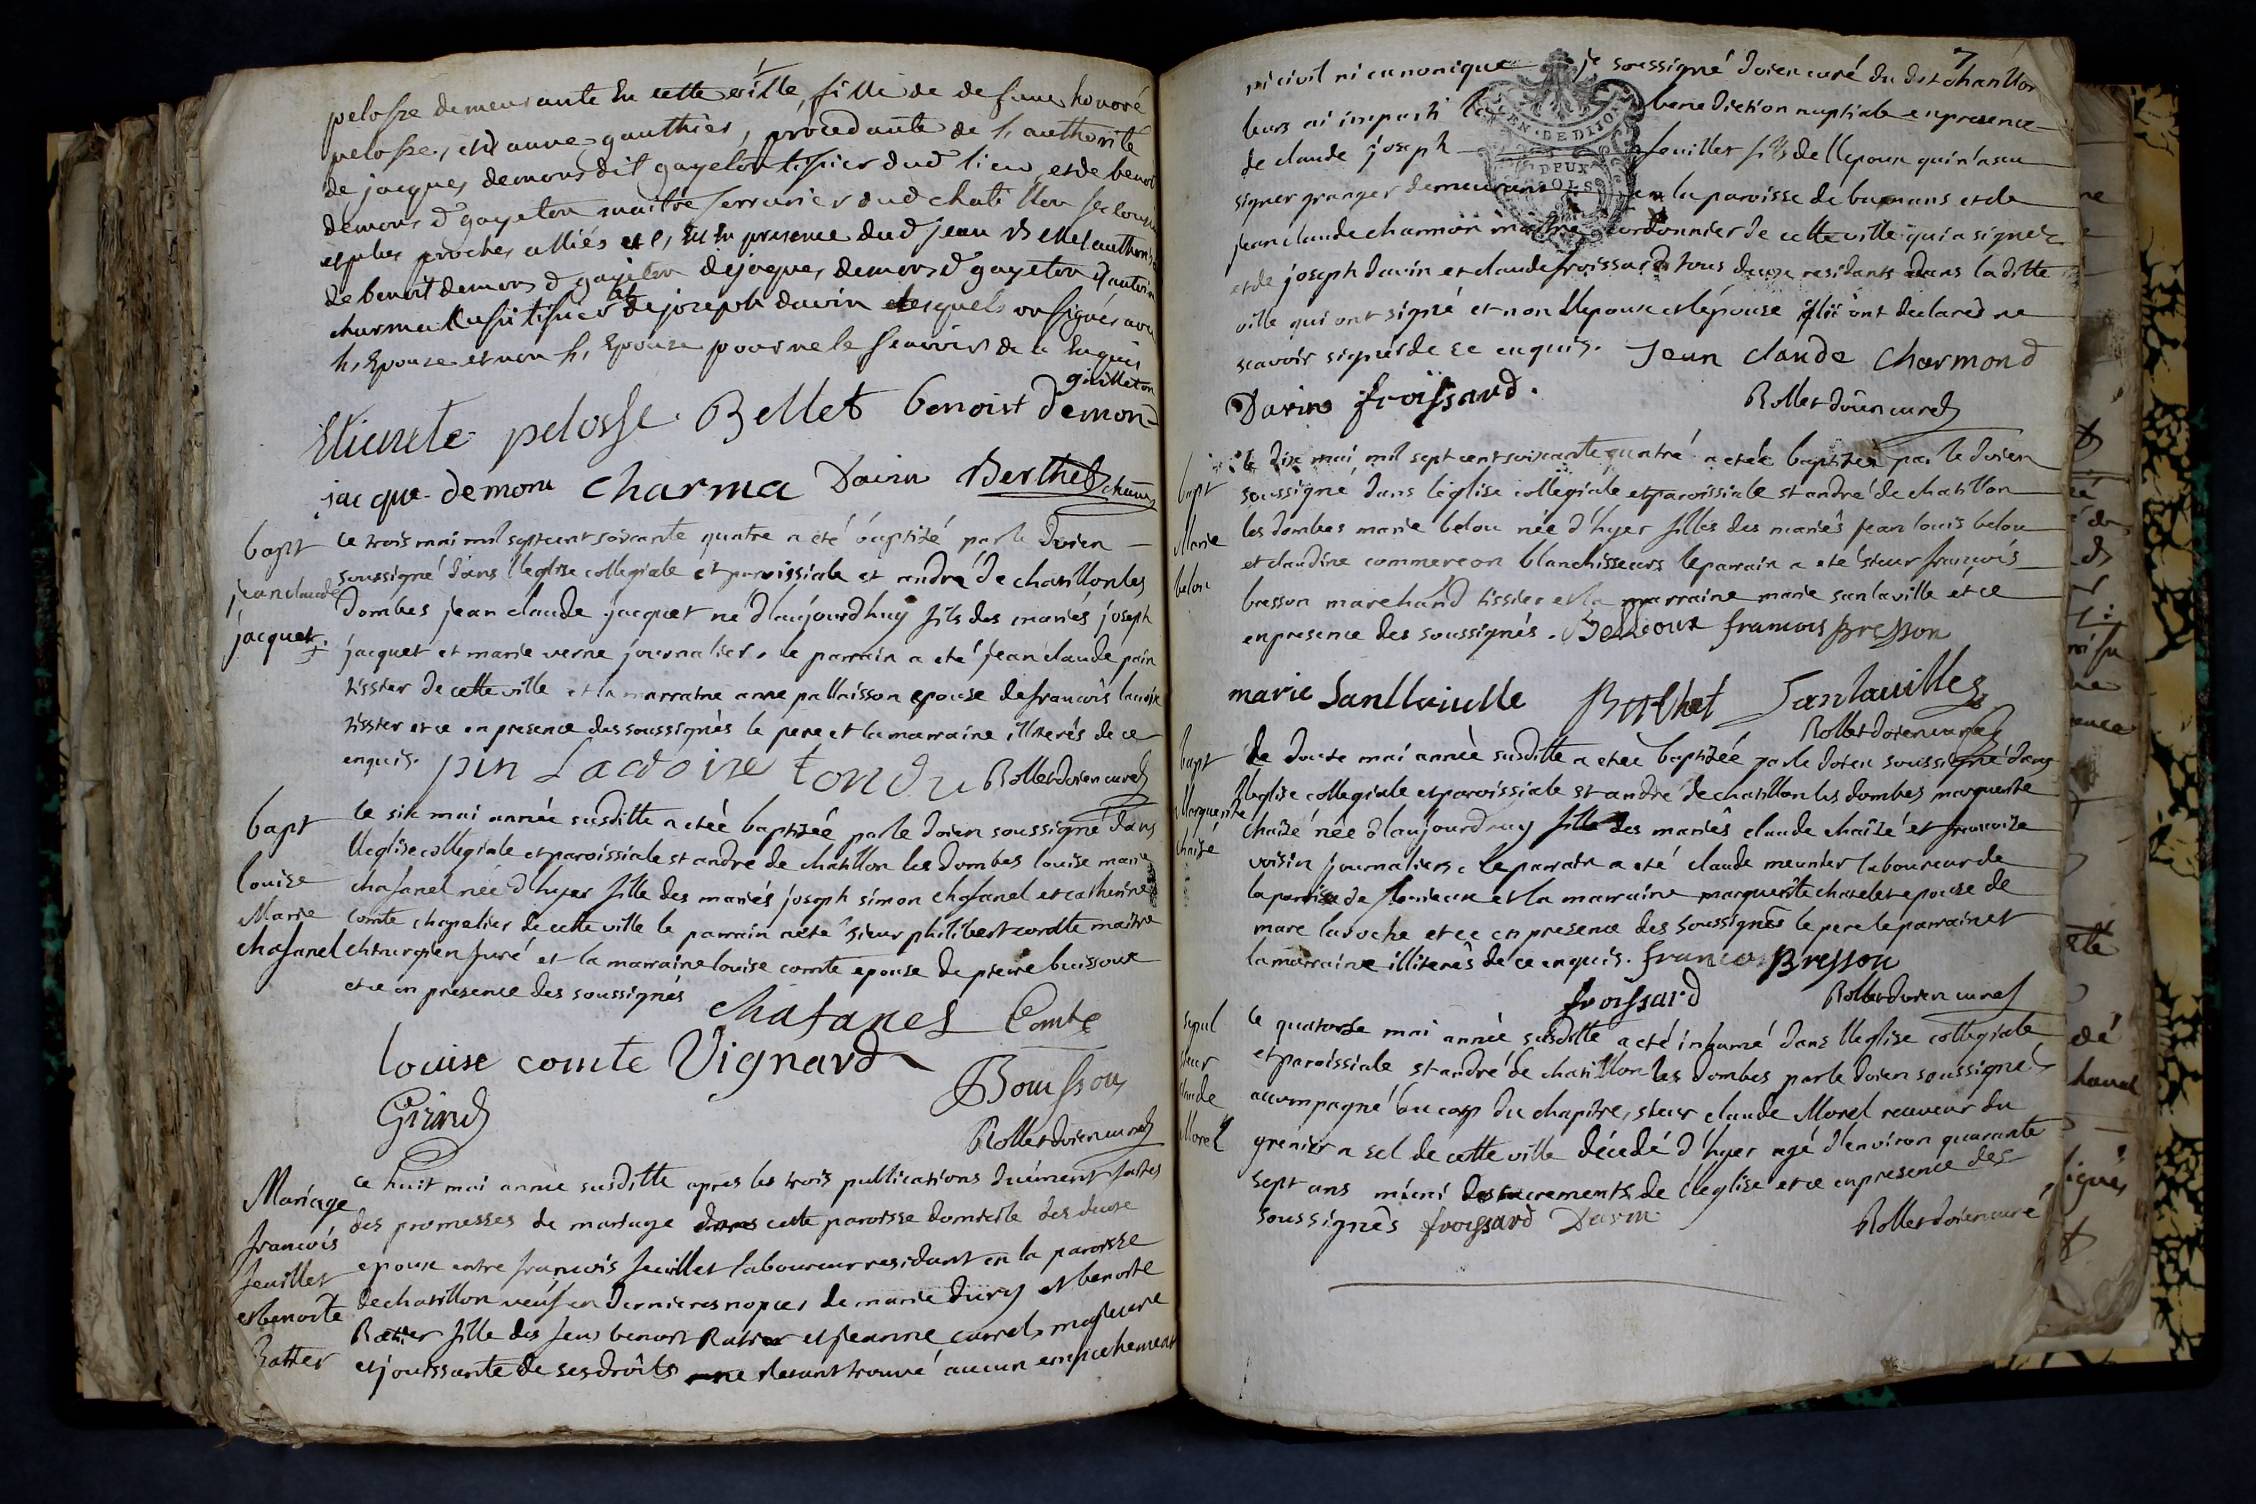 pelosse demeurante en cette ville, fille de defunc honoré
pelosse, et anne gauthier, procedante de l'authorité
de jacques demons dit gayeton tissier dud lieu, et de benoit
demons d gayeton maitre serrurier dud chatillon
et plus proches alliés et en presence dud jean Bellet
de benoit demons d gayeton de jaques demons d gayeton d'antoine
charma tissier et de joseph davin lesquels on signés avec
l'Epoux et non l'Epouse pour ne le scavoir de ce Enquis
guilleton
pelosse Bellet benoist demon
jacque demons charma Davin Berthet
bapt
jean claude
jacquet
Le trois mai mil sept cent soixante quatre a été baptizé par le doien
soussigné dans l'eglise collegiale et paroissiale st andré de chatillon les
dombes jean claude jacquet né d'aujourdhuy fils des mariés joseph
jacquet et marie verne journalier, le parrain a eté jean claude pain
tissier de cette ville et la marraine anne pallaisson epouse de francois
tissier et ce en presence des soussignés le pere et la marraine illiterés de ce
enquis. pin Lacdoire tondu Rollet doien curé
bapt
louise
Marie
chasanel
Le six mai année susditte a etéé baptizéé par le doien soussigné dans
l'eglise collegiale et paroissiale st andré de chatillon les dombes louise marie
chasanel néé d'hyer fille des mariés joseph simon chasanel et catherine
comte chapelier de cette ville le parrain a eté sieur philibert maitre
chirurgien juré et la marraine louise comte epouse de pierre buissoux
et ce en presence des soussignés chasanel Comte
louise comte Vignard
Bouisson
Girind
Rollet doien curé
Mariage
francois
feuillet
et benoite
Ratter
Le huit mai année susditte apres les trois publications duëment faites
des promesses de mariage dans cette paroisse domicile des deux
epoux entre francois feuillet laboureur residant en la paroisse
de chatillon veuf en dernieres nopces de marie dury et benoite
Ratier fille des feus benoit Ratier et jeanne carrel, majeure
et jouissante de ses droits ne s'etant trouvé aucun empechement
7
ni civil ni canonique je soussigné doien curé du dit chatillon
leurs ai imparti la benediction nuptiale en presence
de claude joseph feuillet fils de l'epoux qui n'a scu
signer granger demeurant en la paroisse de buenans et de
jean claude charmon maitre cordonnier de cette ville qui a signé
et de joseph davin et claude froissard tous deux residants dans la ditte
ville qui ont signé et non l'epoux et l'epouse qui ont declaré ne
scavoir signer de ce enquis. Jean claude Charmond
Davin froissard. Rollet doien curé
GEN. DE DIJON
DEUX
SOLS
bapt
Marie
belou
Le dix mai mil sept cent soixante quatre a etéé baptizéé par le doien
soussigné dans l'eglise collegiale et paroissiale st andré de chatillon
les dombes marie belou néé d'hyer fille des mariés jean louis belou
et claudine commercon blanchisseurs le parrain a eté sieur francois
bresson marchand tissier et la marraine marie sanlaville et ce
en presence des soussignés. Belloux francois Bresson
marie Sanllaiulle Berthet Sanlaville
Rollet doien curé
bapt
Marguerite
chaizé
Le douze mai année susditte a etéé baptizéé par le doien soussigné dans
l'eglise collegiale et paroissiale st andré de chatillon les dombes marguerite
chaizé néé d'aujourdhuy fille des mariés claude chaizé et francoize
voisin journaliers, le parrain a eté claude meunier laboureur de
la paroisse de et la marraine marguerite chatelet epouse de
marc laroche et ce en presence des soussignés le pere le parrain et
la marraine illiterés de ce enquis. francois Bresson
froissard Rollet doien curé
sepul
sieur
claude
Morel
Le quatorze mai année susditte a eté inhumé dans l'eglise collegiale
et paroissiale st andré de chatillon les dombes par le doien soussigné
accompagné du corp du chapitre, sieur claude Morel receveur du
grenier a sel de cette ville décédé d'hyer agé d'environ quarante
sept ans muni des sacrements de l'eglise et ce en presence des
soussignés froissard Davin Rollet doien curé